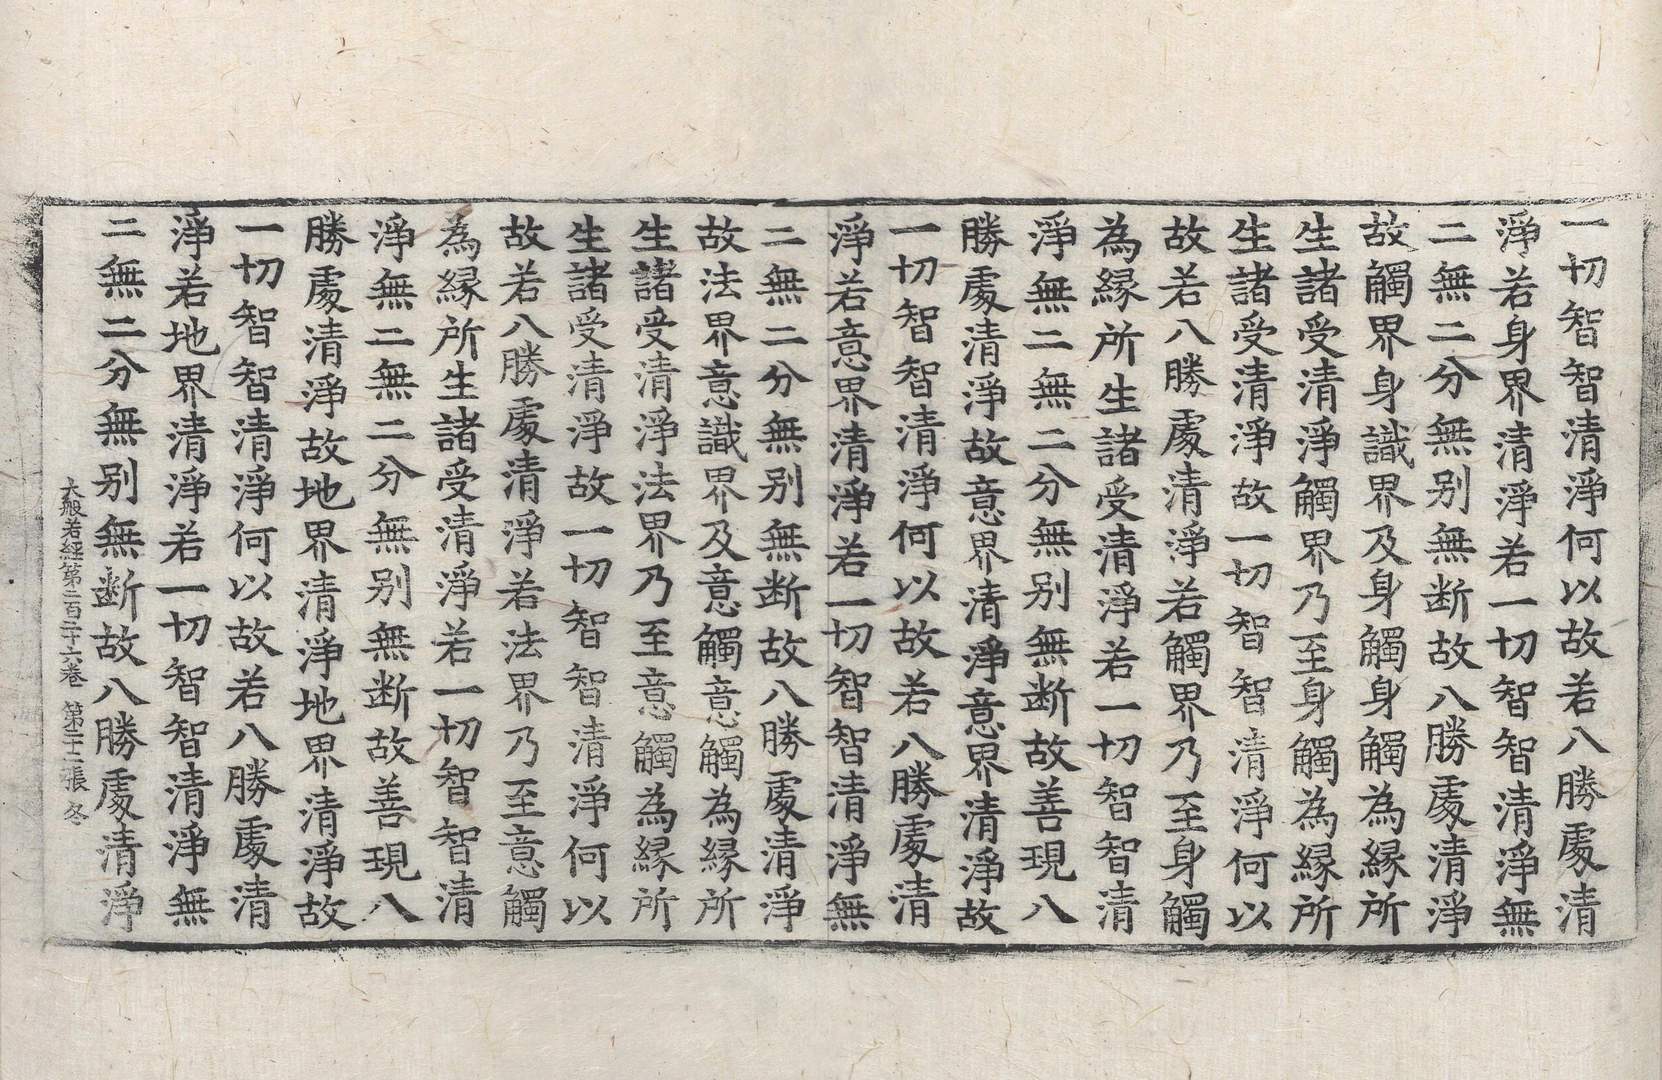 一切智智清淨何以故若八勝處清
淨若身界清淨若一切智智清淨無
二無二分無别無断故八勝處清淨
故觸界身識界及身觸身觸為縁所
生諸受清淨觸界乃至身觸為縁所
生諸受清淨故一切智智清淨何以
故若八勝處清淨若觸界乃至身觸
為縁所生諸受清淨若一切智智清
淨無二無二分無别無断故善現八
勝處清淨故意界清淨意界清淨故
一切智智清淨何以故若八勝處清
淨若意界清淨若一切智智清淨無
二無二分無别無断故八勝處清淨
故法界意識界及意觸意觸為縁所
生諸受清淨法界乃至意觸為縁所
生諸受清淨故一切智智清淨何以
故若八勝處清淨若法界乃至意觸
為縁所生諸受清淨若一切智智清
淨無二無二分無别無断故善現八
勝處清淨故地界清淨地界清淨故
一切智智清淨何以故若八勝處清
淨若地界清淨若一切智智清淨無
二無二分無别無断故八勝處清淨
大般若經第二百二十六卷 第二十二張 冬